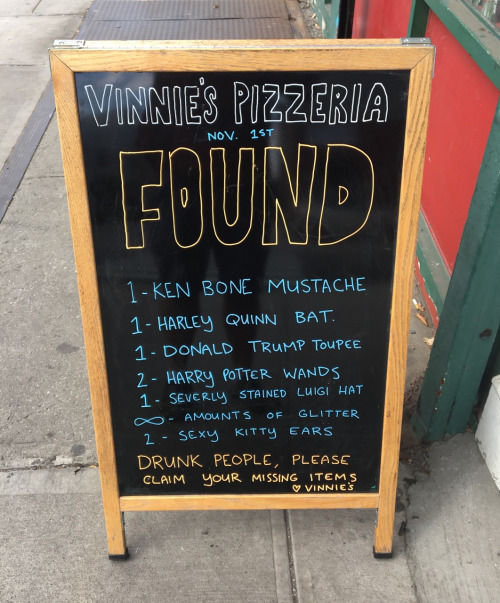 VINNIE'S PIZZERIA
NOV. 1ST
FOUND
1 - KEN BONE MUSTACHE
1 - HARLEY QUINN BAT.
1 - DONALD TRUMP TOUPEE
2 - HARRY POTTER WANDS
1 - SEVERLY STAINED LUIGI HAT
∞ - AMOUNTS OF GLITTER
2 - SEXY KITTY EARS
DRUNK PEOPLE, PLEASE
CLAIM YOUR MISSING ITEMS
♡ VINNIE'S